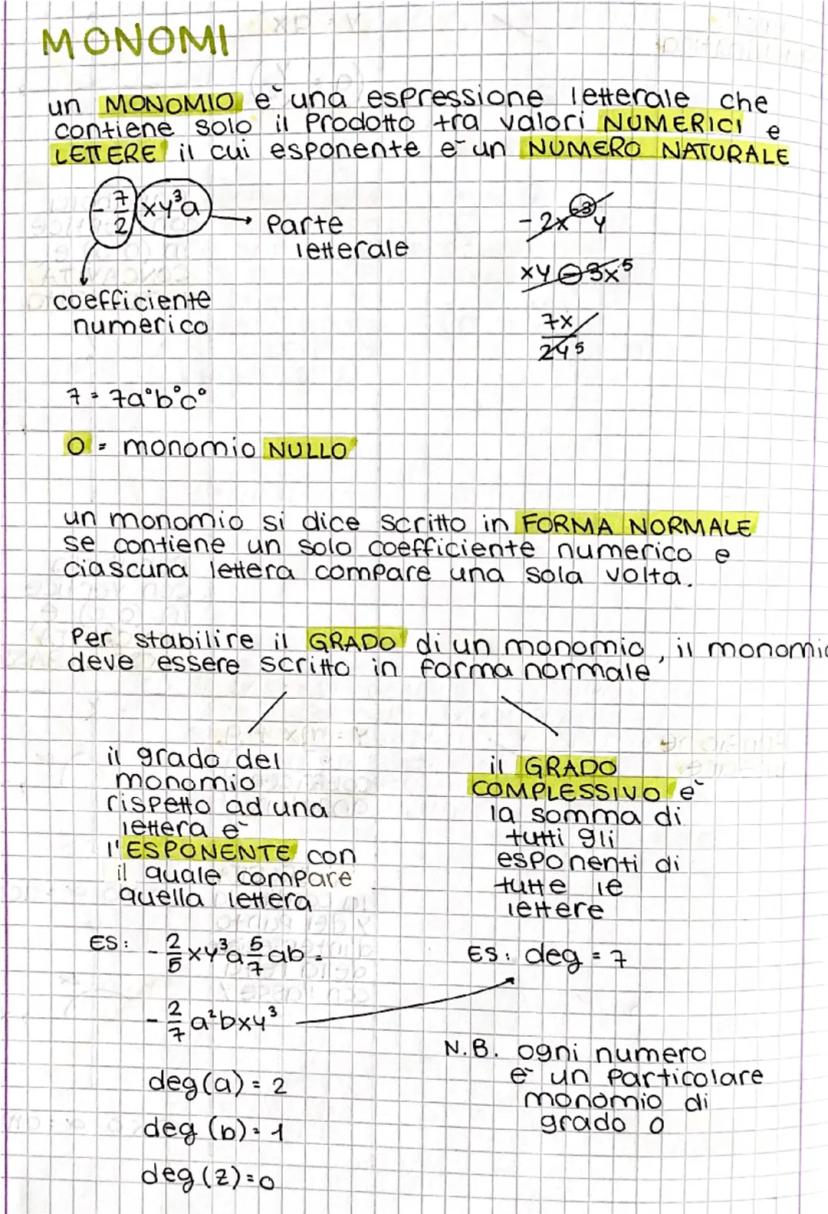 MONOMI
un MONOMIO è una espressione letterale che
contiene solo il prodotto tra valori NUMERICI e
LETTERE il cui esponente è un NUMERO NATURALE
-7/2 xy³a → parte
letterale
coefficiente
numerico
-2x⁻³y
xy - 3x⁵
7x
2y⁵
7 = 7a°b°c°
0 = monomio NULLO
un monomio si dice scritto in FORMA NORMALE
se contiene un solo coefficiente numerico e
ciascuna lettera compare una sola volta.
Per stabilire il GRADO di un monomio, il monomio
deve essere scritto in forma normale
il grado del
monomio
rispetto ad una
lettera è
l'ESPONENTE con
il quale compare
quella lettera
ES: -2/5 xy³a 5/7 ab =
-2/7 a²bxy³
deg(a) = 2
deg (b) = 1
deg (z) = 0
il GRADO
COMPLESSIVO è
la somma di
tutti gli
esponenti di
tutte le
lettere
ES: deg = 7
N.B. ogni numero
è un particolare
monomio di
grado 0